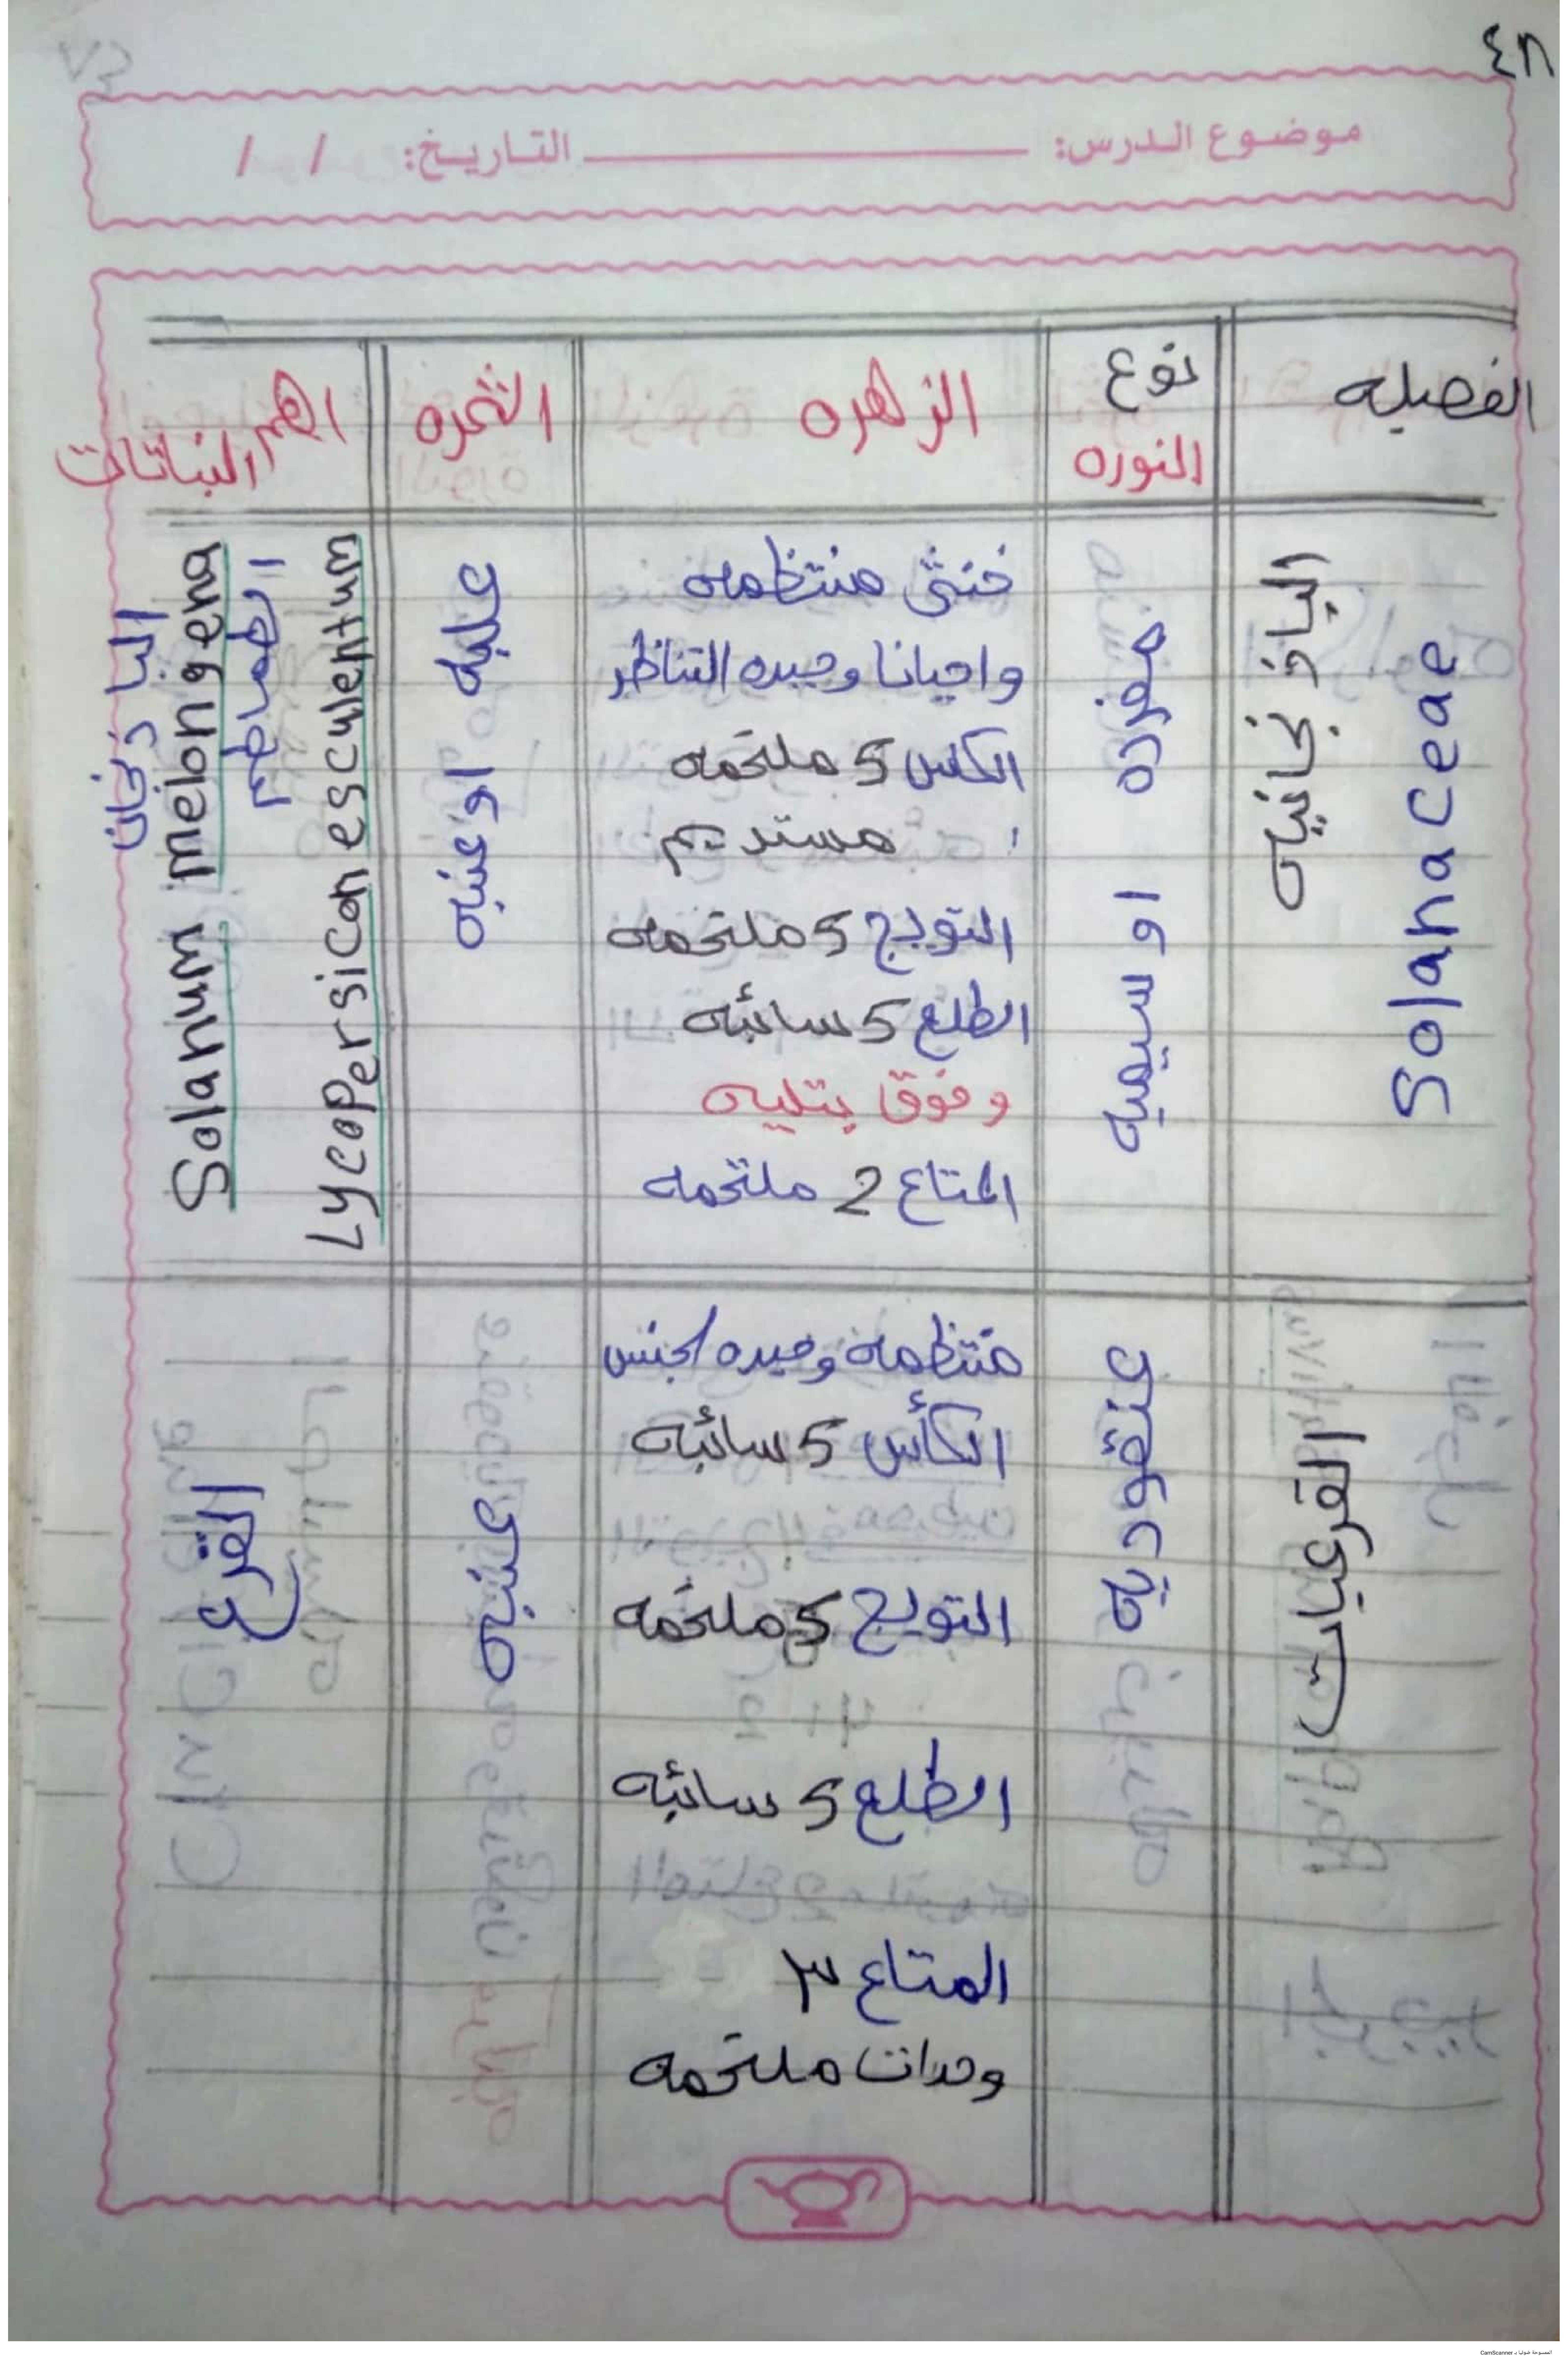 ٤٨
موضوع الدرس: التاريخ: / /
الفصيله
نوع
النوره
الزهره
الثمره
اهم
النباتات
الباذنجانيه
Solanaceae
مفرده او سيميه
خنثى منتظمه
واحيانا وحيده التناظر
الكاس 5 ملتحمه
مستديم
التويج 5 ملتحمه
الطلع 5 سائبه
وفوق بتليه
المتاع 2 ملتحمه
علبه او عنبه
Lycopersicon esculentum
الطماطم
Solanum melongena
الباذنجان
القرعيات
عنقوديه
منتظمه وحيده الجنس
الكأس 5 سائبه
التويج 5 ملتحمه
الطلع 5 سائبه
المتاع ٣
وحدات ملتحمه
عنبه
القرع
الممسوحة ضوئيا بـ CamScanner